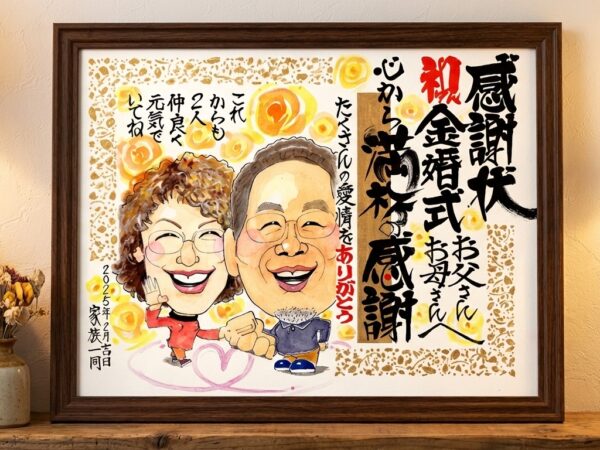 感謝状
祝金婚式
お父さん
お母さんへ
心から満杯の感謝
たくさんの愛情をありがとう
これ
からも
2人
仲良く
元気で
いてね
2025年2月吉日
家族一同